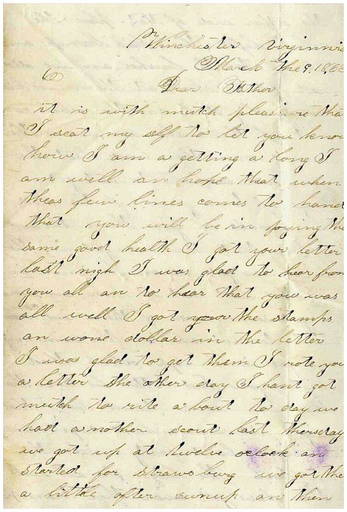 Winchester Virginnia
March the 9, 186
Dear Father
it is with mutch pleasure tha
I seat my self to let you know
how I am a getting a long I
am well an hope that when
theas few lines comes to hand
that you will be in joying the
same good health I got your letter
last nigh I was glad to hear from
you all an to hear that you was
all well I got your the stamps
an wone dollar in the letter
I was glad to get them I rote you
a letter the other day I hant got
mutch to rite a bout to day we
had a nother scout last thersday
we got up at twelve oclock an
started for straws burg we got the
a little after sunup an then